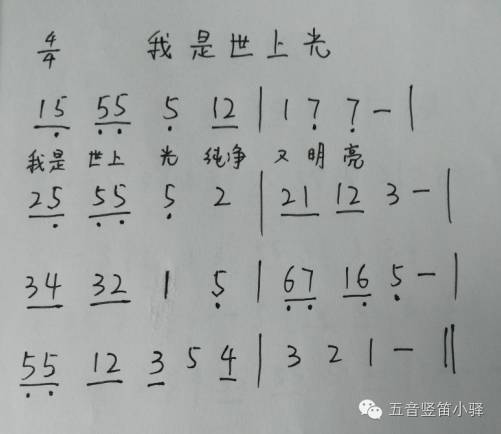 4/4 我是世上光
15 55 5 12 | 1 7 7 - |
我是 世上 光 纯净 又 明 亮
25 55 5 2 | 21 12 3 - |
34 32 1 5 | 67 16 5 - |
55 12 3 5 4 | 3 2 1 - ||
五音竖笛小驿